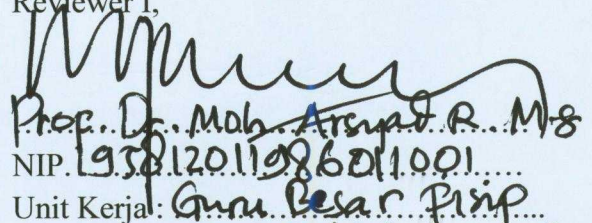 Reviewer I,
Prof. Dr. Moh. Arsyad R. M-8
NIP. 195812011986011001
Unit Kerja : Guru Besar Fisip